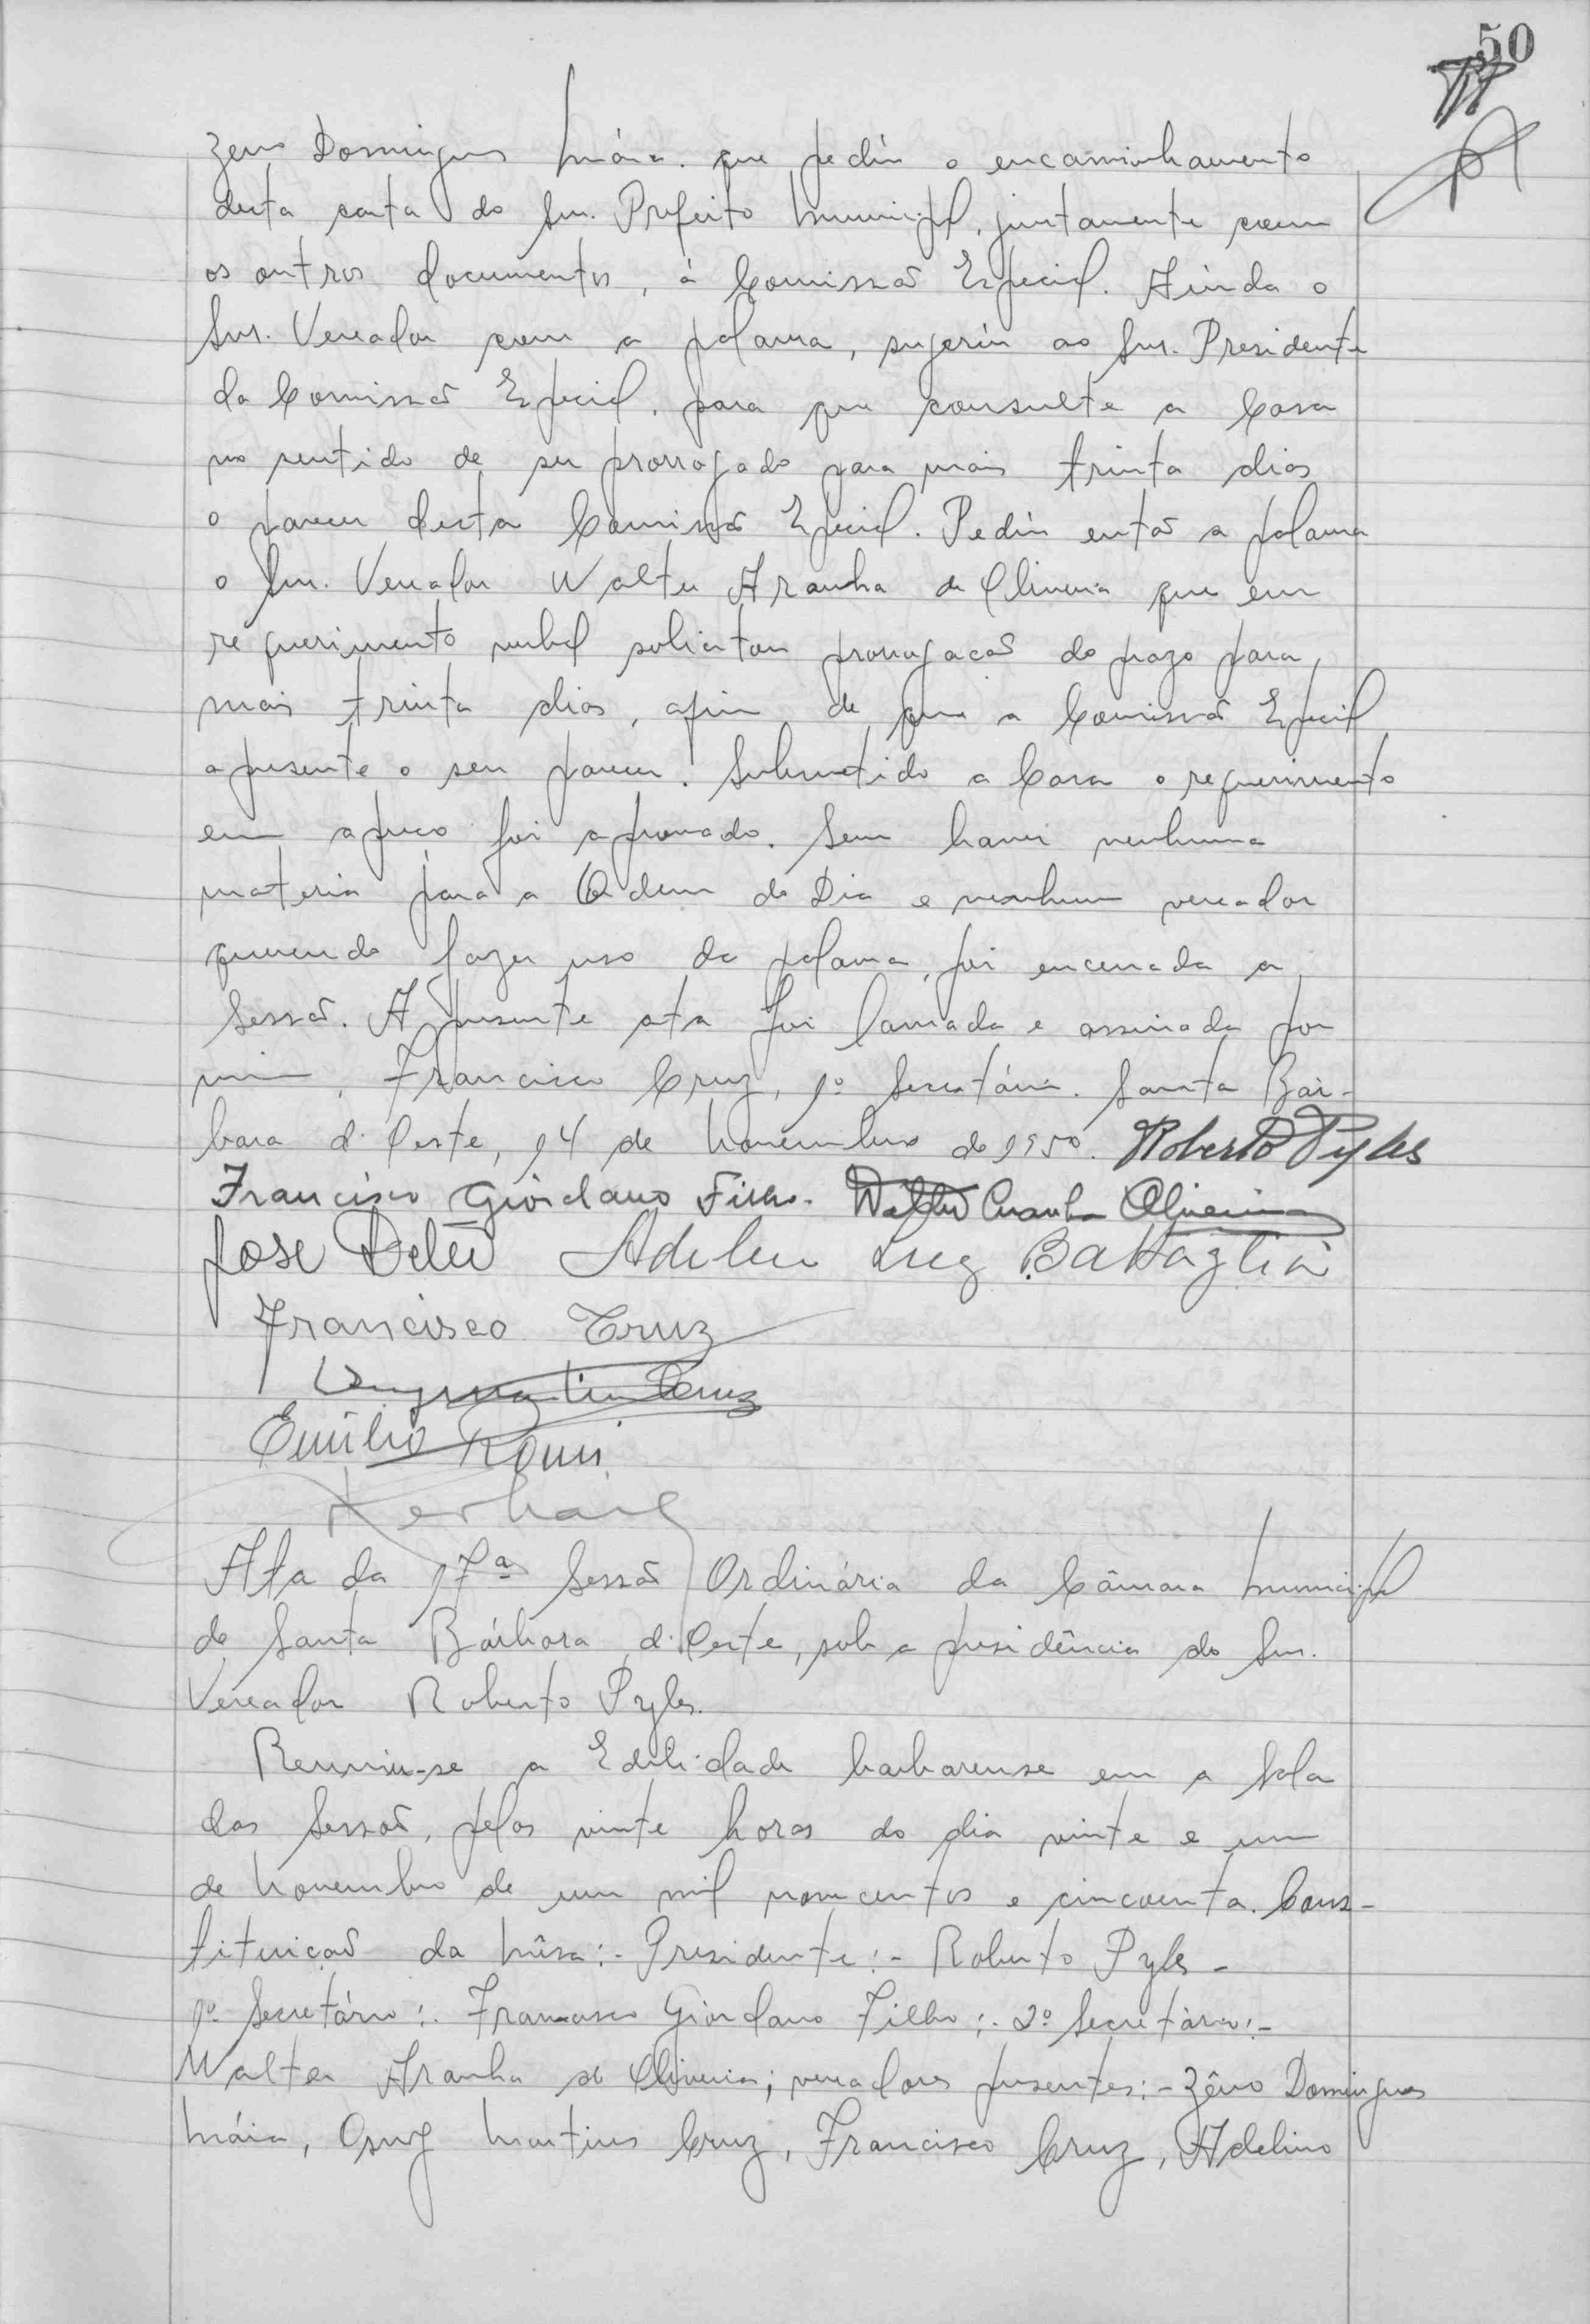 50
Zeno Domingues Máia. que pedíu o encaminhamento
desta carta do Snr. Prefeito Municipal, juntamente com
os outros documentos, á Comissão Especial. Aínda o
Snr. Vereador com a palavra, sugeríu ao Snr. Presidente
da Comissão Especial, para que consulte a Casa
no sentido de ser prorrogado para mais trinta dias
o parecer desta Comissão Especial. Pedíu então a palavra
o Snr. Vereador Walter Aranha de Oliveira que em
requerimento verbal solicitou prorrogacão do prazo para
mais trinta dias, afim de que a Comissão Especial
apresente o seu parecer. Submetido a Casa o requerimento
em apreco foi aprovado. Sem haver nenhuma
materia para a Ordem do Dia e nenhum vereador
querendo fazer uso da palavra, foi encerrada a
Sessão. A presente ata foi lavrada e assinada por
mim, Francisco Cruz, 1º Secretário. Santa Bár-
bara d'Oeste, 14 de Novembro de 1950. Roberto Pyles
Francisco Giordano Filho. Walter Aranha Oliveira
José Adelino Luiz Battaglia
Francisco Cruz
Martins Cruz
Emílio Romi
Ata da 17ª Sessão Ordinária da Câmara Municipal
de Santa Bárbara d'Oeste, sob a presidência do Snr.
Vereador Roberto Pyles.
Reuniu-se a Edilidade barbarense em a Sala
das Sessoẽs, pelas vinte horas do dia vinte e um
de Novembro de um mil novecentos e cincoenta. Cons-
tituicão da Mêsa:- Presidente:- Roberto Pyles -
1º Secretário:- Francisco Giordano Filho:- 2º Secretário:-
Walter Aranha de Oliveira; vereadores presentes:- Zêno Domingues
Máia, Osny Martins Cruz, Francisco Cruz, Adelino